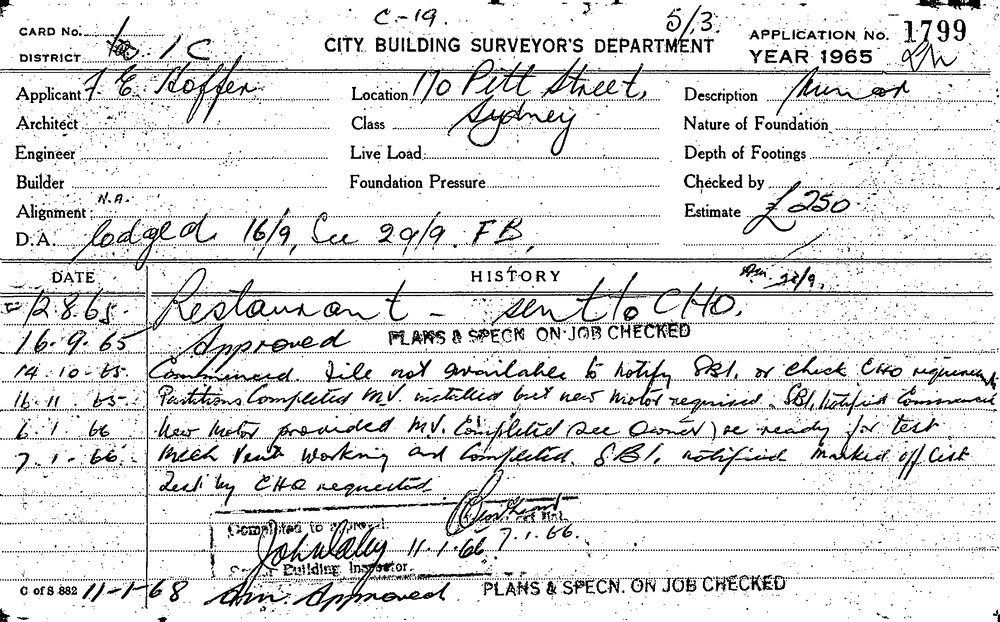 C-19.
5/3.
CARD No. 1
DISTRICT 1C
CITY BUILDING SURVEYOR'S DEPARTMENT
APPLICATION No. 1799
YEAR 1965
Applicant F. E. Hoffer
Location 170 Pitt Street,
Sydney
Description Minor
Architect
Class
Nature of Foundation
Engineer
Live Load
Depth of Footings
Builder
Foundation Pressure
Checked by
Alignment N.A.
Estimate £250
D.A. lodged 16/9, See 29/9. FB,
DATE
HISTORY
28/9.
12.8.65 Restaurant - sent to CHO.
16.9.65 Approved PLANS & SPECN ON JOB CHECKED
14.10.65 Commenced. File not available to notify SBI, or check CHO requirements
16.11.65 Partitions Completed M.V. installed but new motor required. SBI, notified
6.1.66 New motor provided M.V. Completed (see owner) re ready for test
7.1.66 Mech Vent working and Completed. SBI, notified marked off list
Test by CHO requested
Completed to approval.
11.1.66 7.1.66.
Building Inspector.
C of S 882 11-1-68 Approved PLANS & SPECN. ON JOB CHECKED